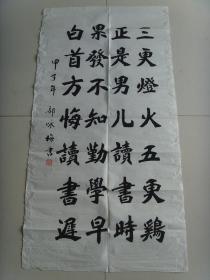 三更燈火五更鷄
正是男儿讀書時
果發不知勤學早
白首方悔讀書遲
甲丁年 郭咏梅書